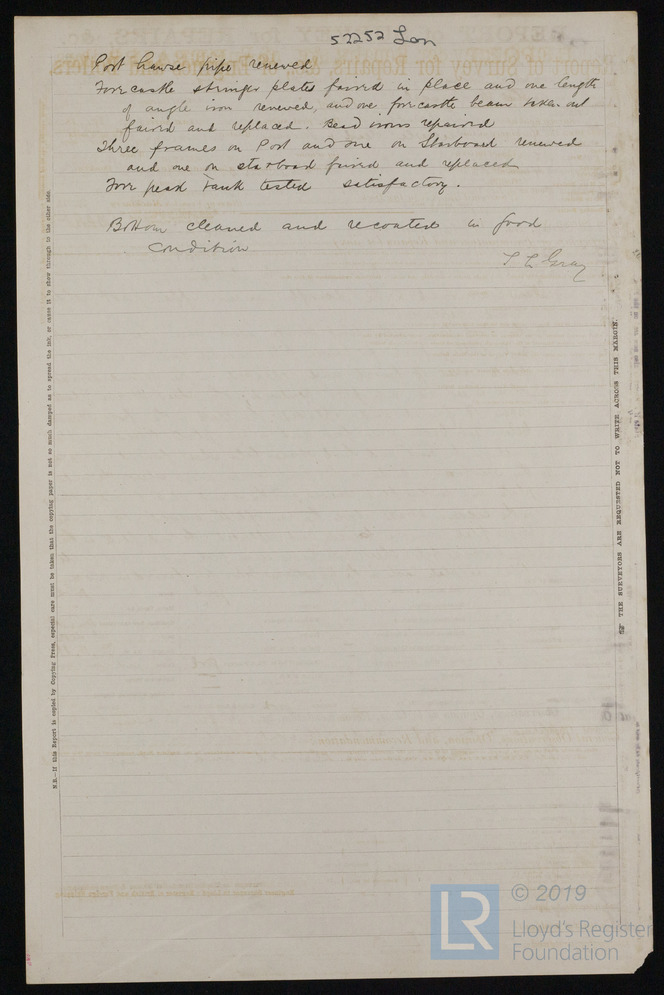 52252 Lon
Port hawse pipe renewed
Fore castle stringer plates faired in place and one length
of angle iron renewed, and one forecastle beam taken out
faired and replaced. Bead irons repaired
Three frames on Port and one on Starboard renewed
and one on starboard faired and replaced
Fore peak Tank tested satisfactory.
Bottom cleaned and recoated in good
condition
T L Gray
N.B.—If this Report is copied by Copying Press, especial care must be taken that the copying paper is not so much damped as to spread the ink, or cause it to show through to the other side.
THE SURVEYORS ARE REQUESTED NOT TO WRITE ACROSS THIS MARGIN.
LR
© 2019
Lloyd's Register
Foundation